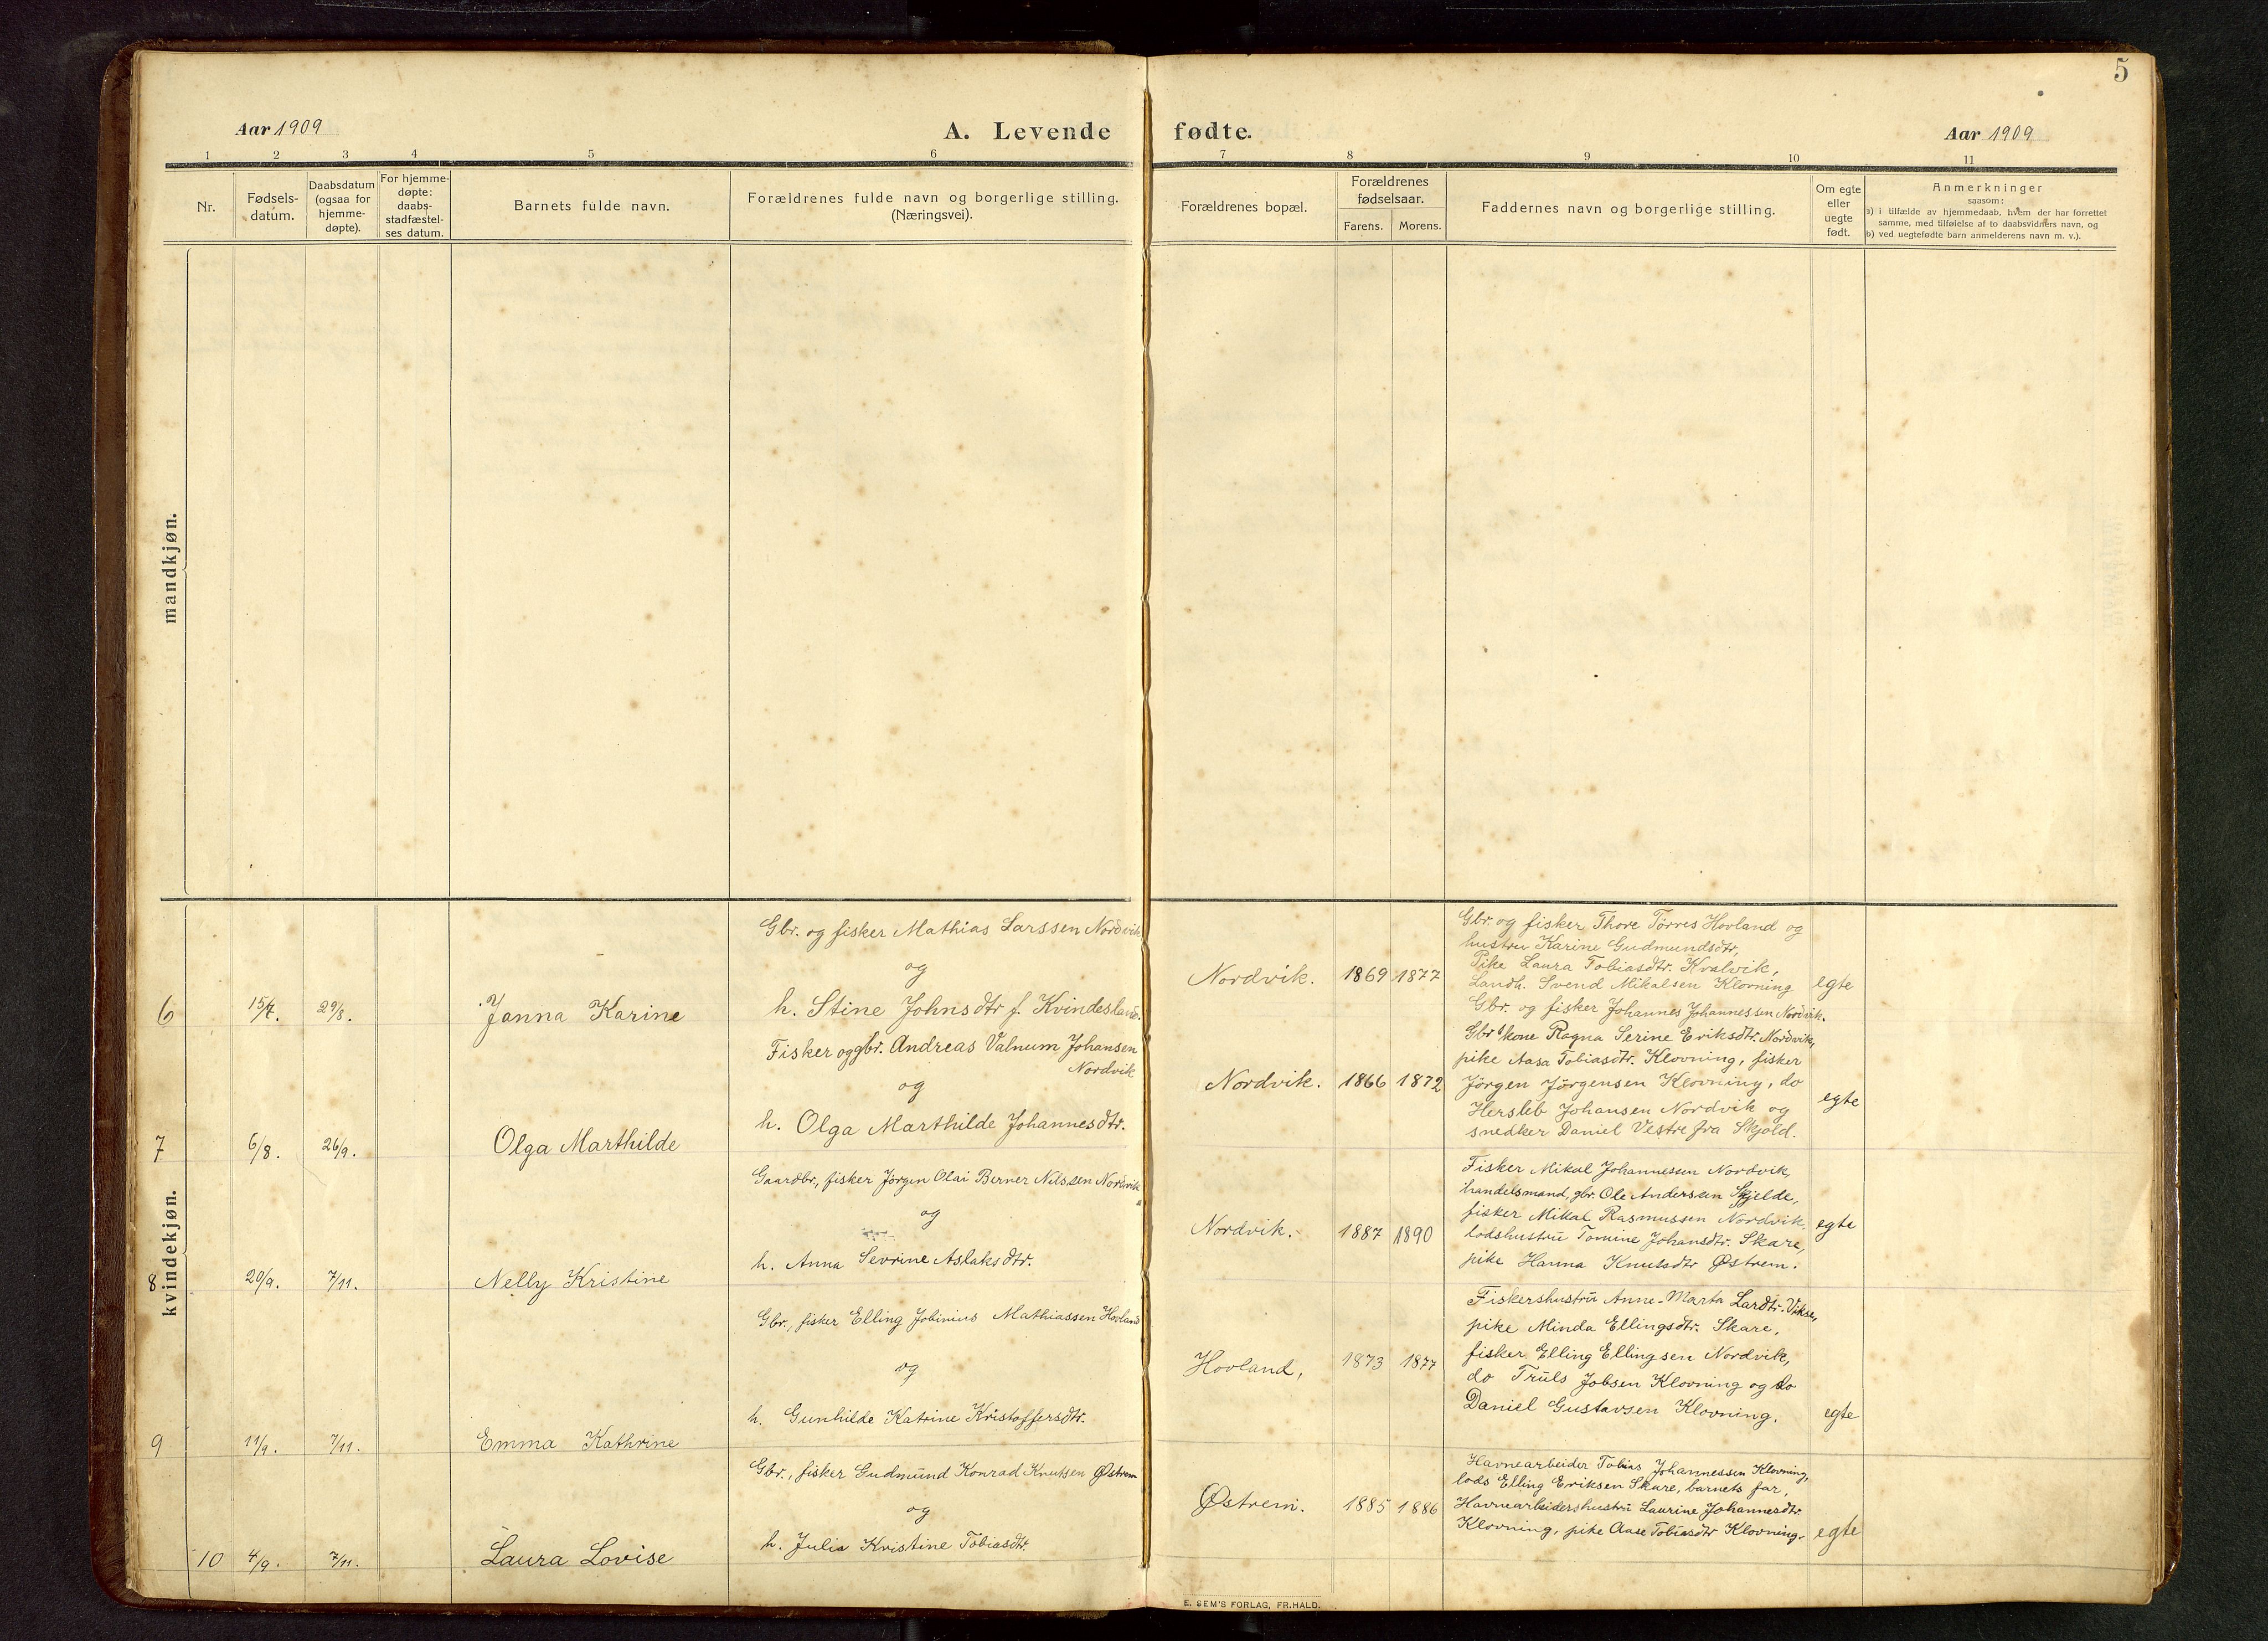 5
Aar 1909
A. Levende fødte.
Aar 1909
1 2 3 4 5 6 7 8 9 10 11
Nr.
Fødsels-
datum.
Daabsdatum
(ogsaa for
hjemme-
døpte).
For hjemme-
døpte:
daabs-
stadfæstel-
ses datum.
Barnets fulde navn.
Forældrenes fulde navn og borgerlige stilling.
(Næringsvei).
Forældrenes bopæl.
Forældrenes
fødselsaar.
Farens. Morens.
Faddernes navn og borgerlige stilling.
Om egte
eller
uegte
født.
Anmerkninger
saasom:
a) i tilfælde av hjemmedaab, hvem der har forrettet
samme, med tilføielse af to daabsvidners navn, og
b) ved uegtefødte barn anmelderens navn m. v.).
mandkjøn.
kvindekjøn.
6
15/7.
29/8.
Janna Karine
Gbr. og fisker Mathias Larssen Nordvik
og
h. Stine Johnsdtr f. Kvindesland.
Nordvik.
1869 1877
Gbr. og fisker Thore Tørres Hovland og
hustru Karine Gudmundsdtr,
Pike Laura Tobiasdtr. Kvalvik,
Landh. Svend Mikalsen Klovning
Gbr. og fisker Johannes Johannessen Nordvik.
egte
7
6/8.
26/9.
Olga Marthilde
Fisker og gbr. Andreas Valnum Johansen
Nordvik
og
h. Olga Marthilde Johannesdtr.
Nordvik.
1866 1872
Gbr kone Ragna Serine Eriksdtr. Nordvik,
pike Aasa Tobiasdtr. Klovning, fisker
Jörgen Jörgensen Klovning, do
Hersleb Johansen Nordvik og
snedker Daniel Vestre fra Skjold.
egte
8
20/9.
7/11.
Nelly Kristine
Gaardbr., fisker Jörgen Olai Berner Nilssen Nordvik
og
h. Anna Sevrine Aslaksdtr.
Nordvik.
1887 1890
Fisker Mikal Johannessen Nordvik,
handelsmand, gbr. Ole Anderssen Skjelde,
fisker Mikal Rasmussen Nordvik,
lodshustru Tomine Johansdtr. Skare,
pike Hanna Knutsdtr Østrem.
egte
9
11/9.
7/11.
Emma Kathrine
Gbr., fisker Elling Jobinius Mathiassen Hovland
og
h. Gunhilde Katrine Kristoffersdtr.
Hovland,
1873 1877
Fiskershustru Anne-Marta Larsdtr. Vikse,
pike Minda Ellingsdtr. Skare,
fisker Elling Ellingsen Nordvik,
do Truls Jobsen Klovning og do
Daniel Gustavsen Klovning.
egte
10
4/9.
7/11.
Laura Lovise
Gbr., fisker Gudmund Konrad Knutsen Østrem
og
h. Julia Kristine Tobiasdtr.
Østrem.
1885 1886
Havnearbeider Tobias Johannessen Klovning,
lods Elling Eriksen Skare, barnets far,
Havnearbeidershustru Laurine Johannesdtr
Klovning, pike Aase Tobiasdtr Klovning.
egte
E. SEM'S FORLAG, FR.HALD.